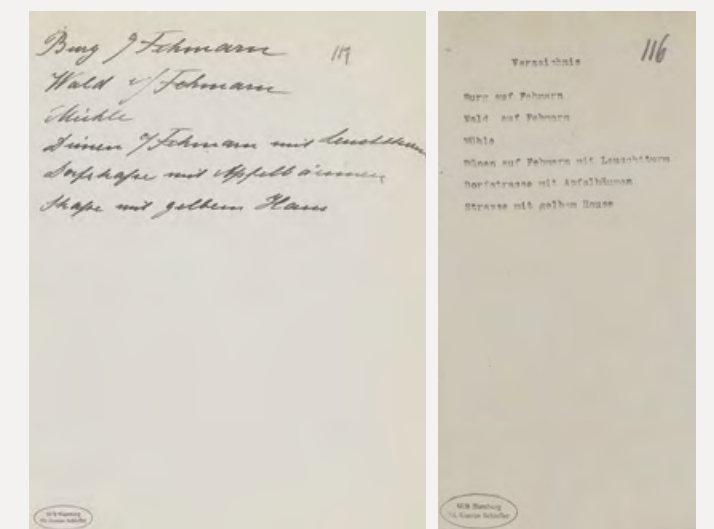 Burg a/Fehmarn
117
Wald a/Fehmarn
Mühle
Dünen a/Fehmarn mit Leuchtthurm
Dorfstraße mit Apfelbäumen
Straße mit gelbem Haus
SUB Hamburg
NL Gustav Schiefler
116
Verzeichnis
Burg auf Fehmarn
Wald auf Fehmarn
Mühle
Dünen auf Fehmarn mit Leuchtturm
Dorfstrasse mit Apfelbäumen
Strasse mit gelbem Hause
SUB Hamburg
NL Gustav Schiefler